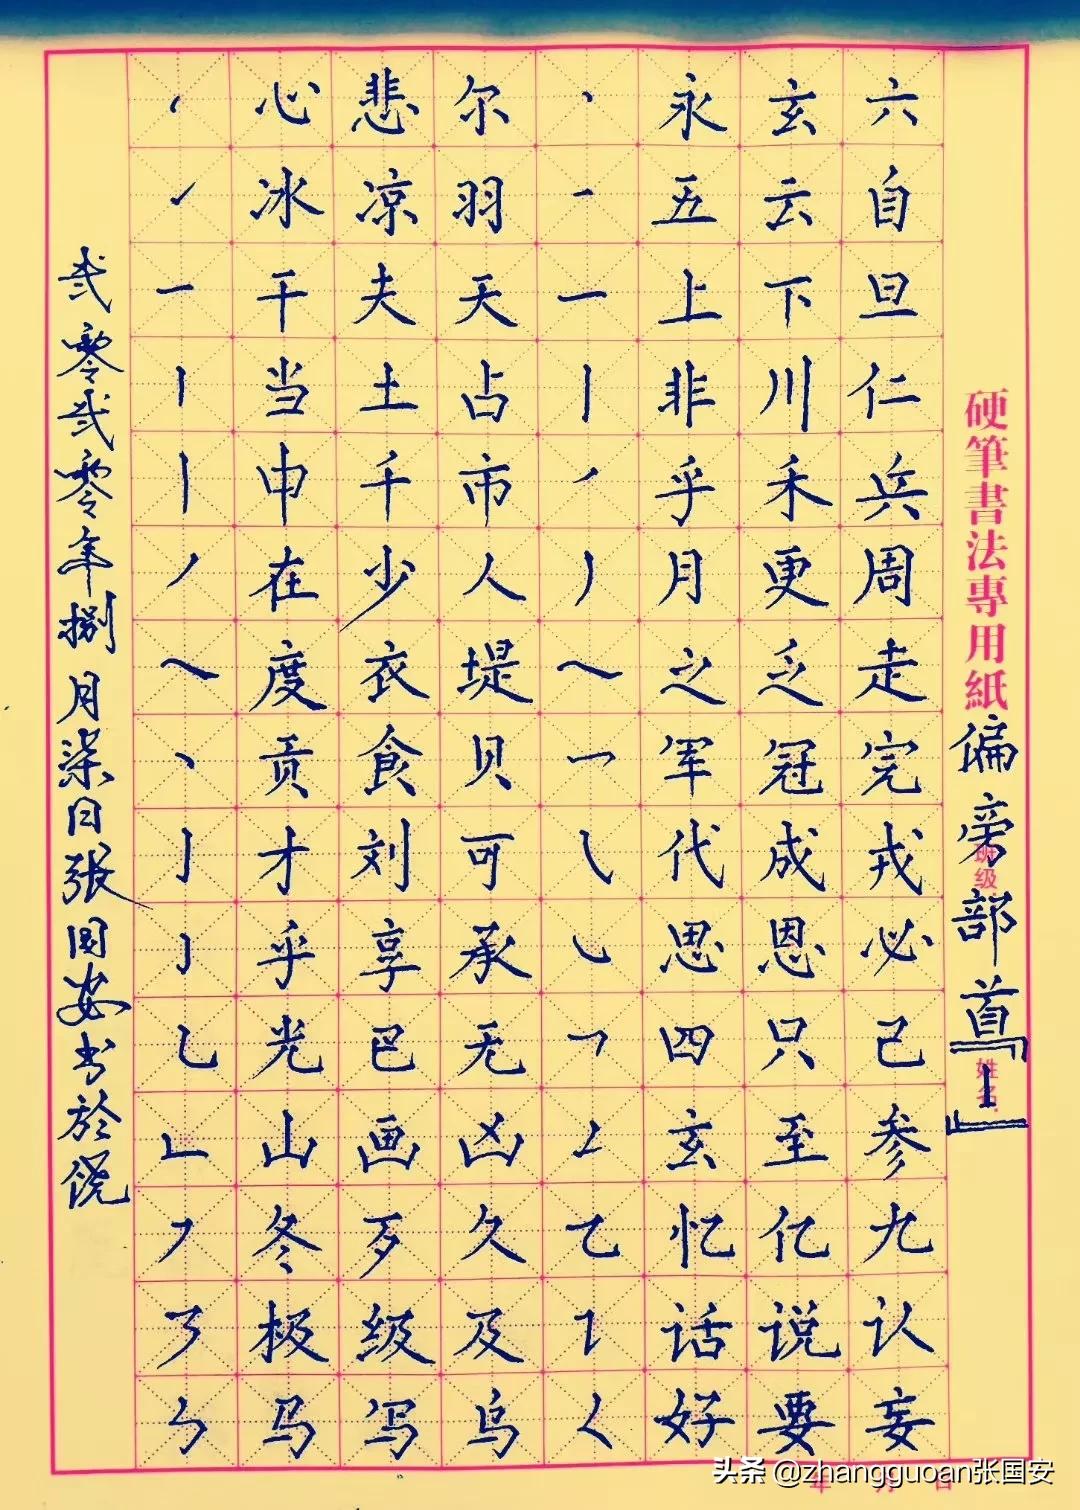 硬筆書法專用紙
偏旁部首「1」
班级
姓名:
㇔ 心 悲 尔 丶 永 玄 六
㇀ 冰 凉 羽 一 五 云 自
一 干 夫 天 一 上 下 旦
丨 当 土 占 丨 非 川 仁
丨 申 千 市 丿 乎 禾 兵
丿 在 少 人 丿 月 更 周
㇏ 度 衣 堤 ㇏ 之 乏 走
丶 贡 食 贝 乛 军 冠 完
亅 才 刘 可 ㇂ 代 成 戎
亅 乎 享 承 ㇃ 思 恩 必
乚 光 巴 无 ㇕ 四 只 己
㇗ 山 画 凶 ㇜ 玄 至 参
㇇ 冬 歹 久 乙 忆 亿 九
㇋ 极 级 及 ㇊ 话 说 认
㇉ 马 写 乌 ㇛ 好 要 妄
弍零弍零年捌月柒日张国安书於
年 月 日
头条 @zhangguoan张国安